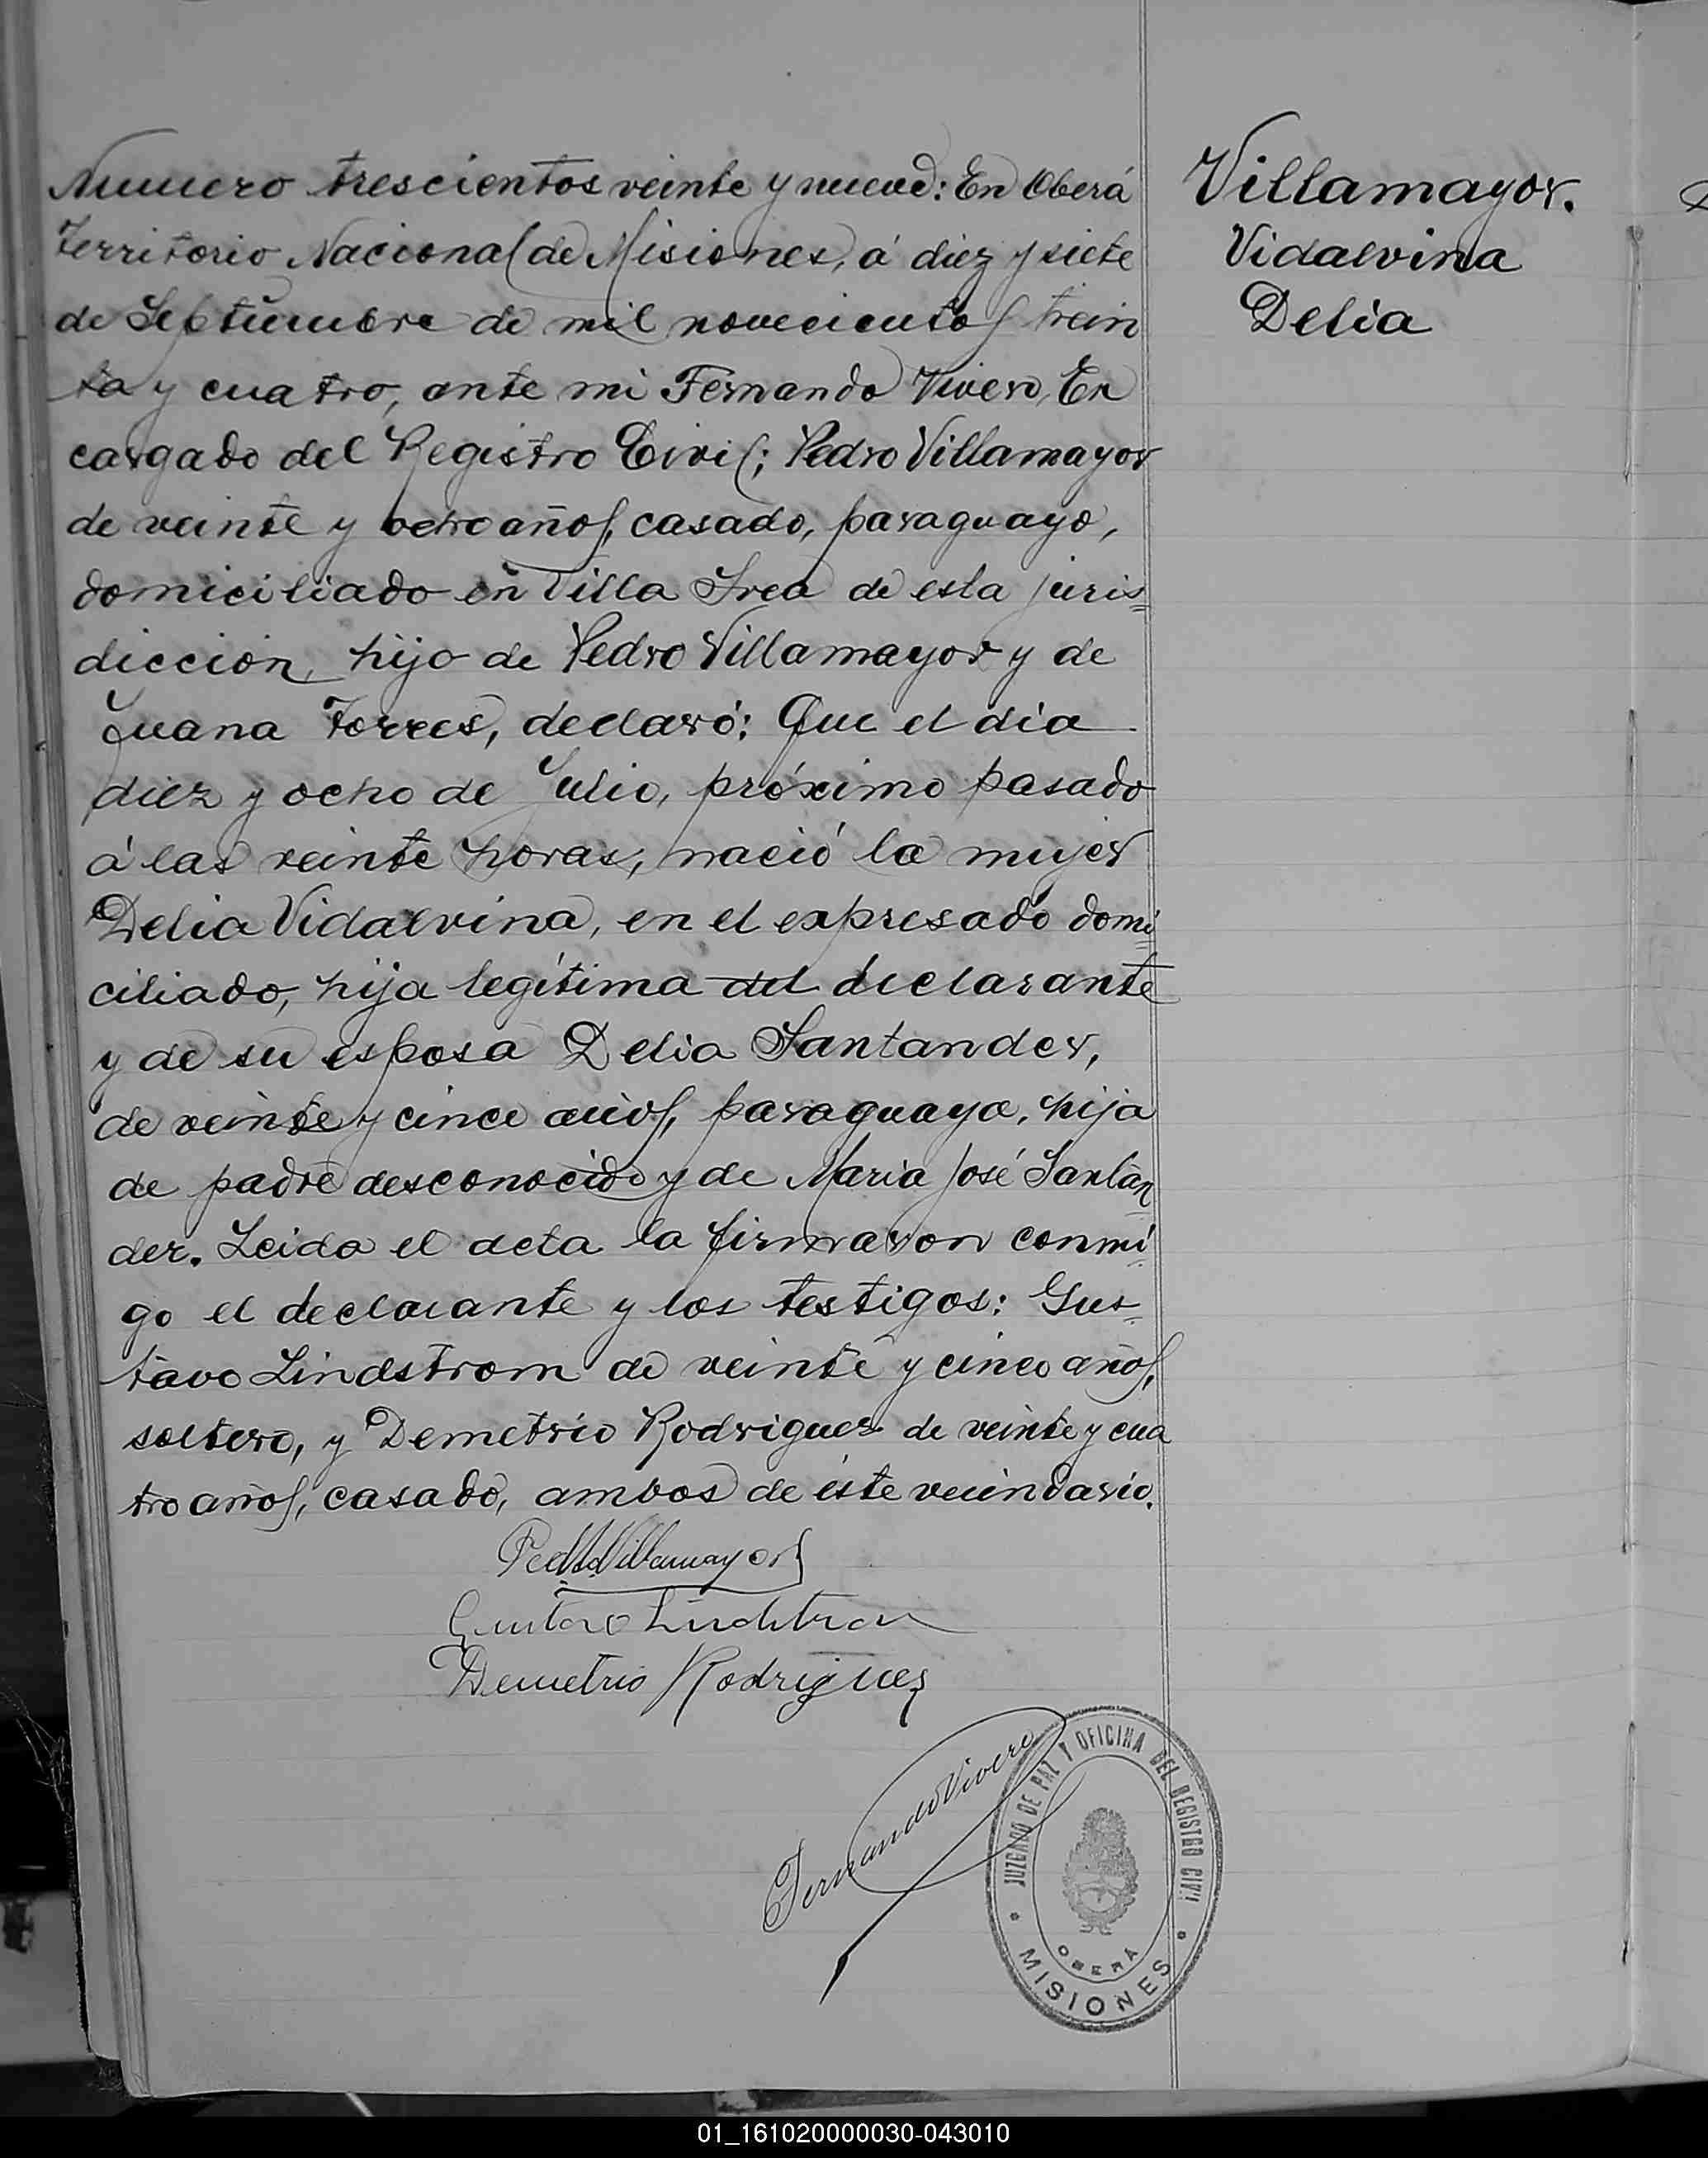 Numero trescientos veinte y nueve: En Oberá
Territorio Nacional de Misiones, á diez y siete
de Septiembre de mil novecientos trein
ta y cuatro, ante mi Fernando Vivero, En
cargado del Registro Civil; Pedro Villamayor
de veinte y ocho años, casado, paraguayo,
domiciliado en Villa Svea de esta juris=
dicción, hijo de Pedro Villamayor y de
Juana Torres, declaró: Que el dia
diez y ocho de Julio, próximo pasado
á las veinte horas, nació la mujer
Delia Vidalvina, en el expresado domi=
ciliado, hija legítima del declarante
y de su esposa Delia Santander,
de veinte y cinco años, paraguaya, hija
de padre desconocido y de Maria José Santan
der. Leida el acta la firmaron conmi
go el declarante y los testigos: Gus
tavo Lindstrom de veinte y cinco años,
soltero, y Demetrio Rodriguez de veinte y cua
tro años, casado, ambos de éste vecindario.
Pedro Villamayor
Gustavo Lindstrom
Demetrio Rodriguez
Fernando Vivero
JUZGADO DE PAZ Y OFICINA DEL REGISTRO CIVIL
OBERÁ
* MISIONES *
Villamayor.
Vidalvina
Delia
01_161020000030-043010